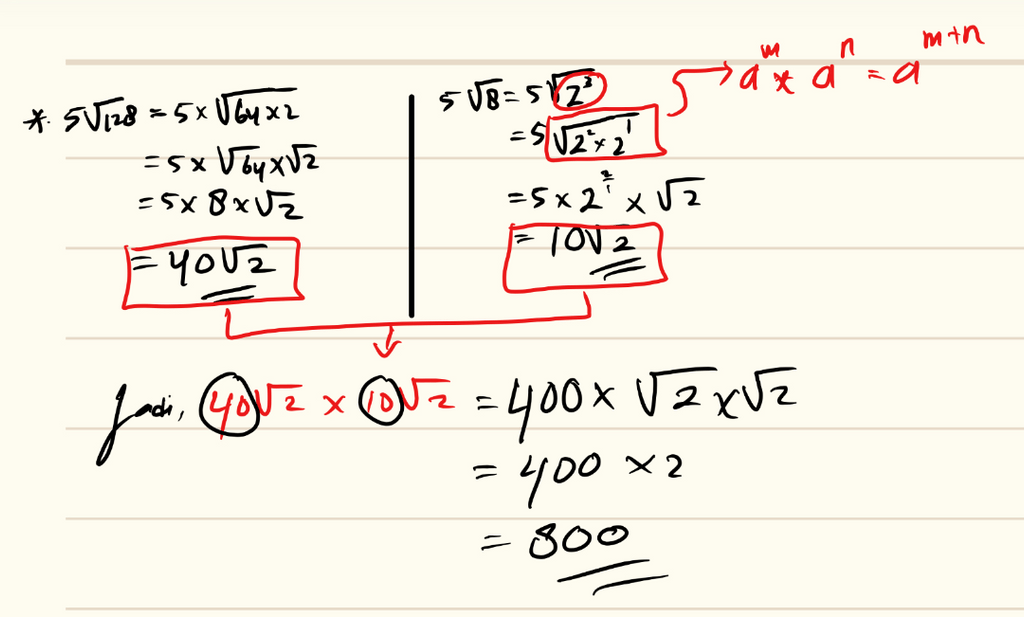 * 5√128 = 5 × √64 × 2
= 5 × √64 × √2
= 5 × 8 × √2
= 40√2
5√8 = 5√2³
= 5√2² × 2¹
= 5 × 2^(2/1) × √2
= 10√2
aᵐ × aⁿ = aᵐ⁺ⁿ
Jadi, 40√2 × 10√2 = 400 × √2 × √2
= 400 × 2
= 800